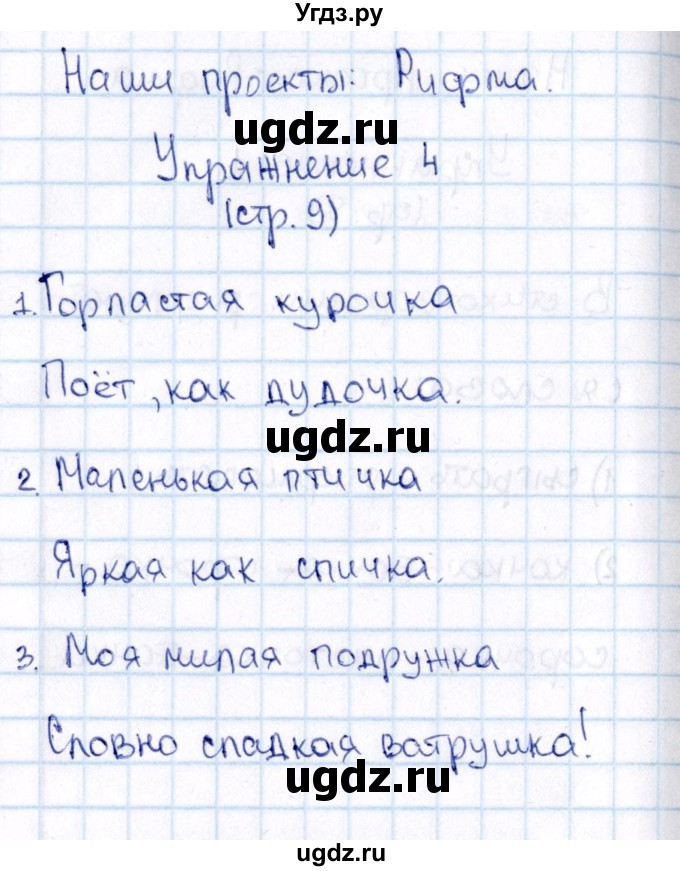 Угдз.ру
Наши проекты: Рифма.
ugdz.ru
Упражнение 4
(стр. 9)
1. Горластая курочка
Поёт, как дудочка.
ugdz.ru
2. Маленькая птичка
Яркая как спичка.
3. Моя милая подружка
Словно сладкая ватрушка!
ugdz.ru
ugdz.ru